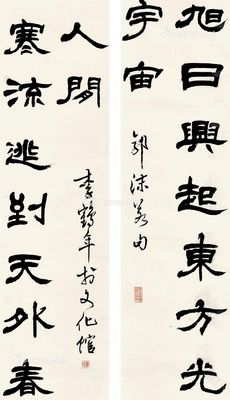 旭日興起東方光
宇宙
郭沫若句
寒流逃到天外春
人間
李鶴年於文化館